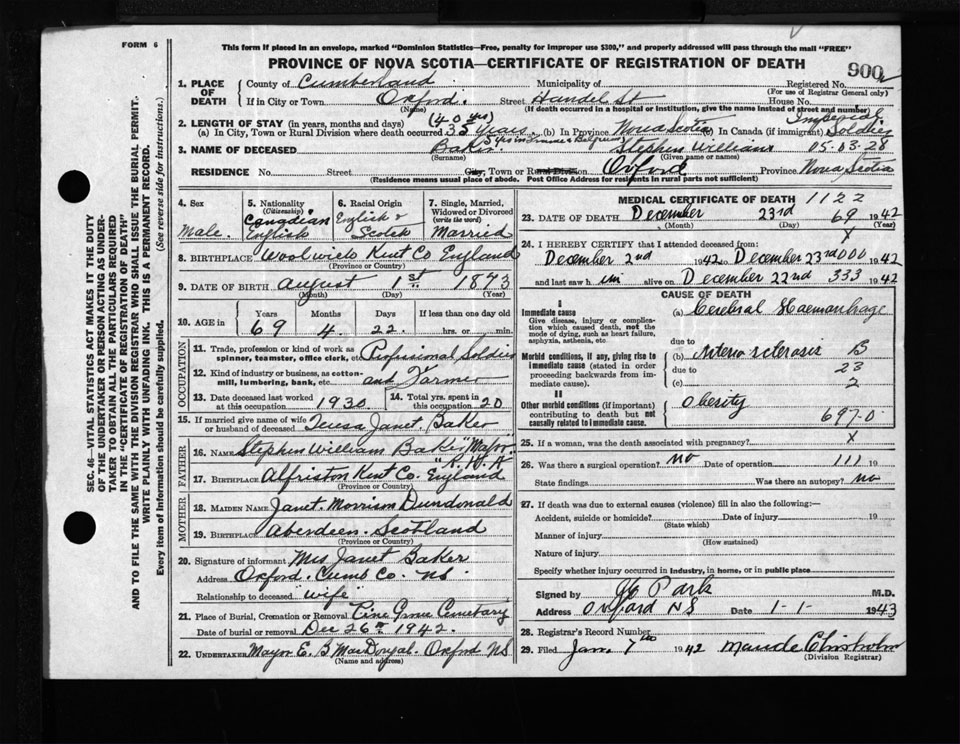 FORM 6
This form if placed in an envelope, marked "Dominion Statistics—Free, penalty for improper use $300," and properly addressed will pass through the mail "FREE"
PROVINCE OF NOVA SCOTIA—CERTIFICATE OF REGISTRATION OF DEATH
900
1. PLACE OF DEATH
County of Cumberland Municipality of Registered No.
(For use of Registrar General only)
If in City or Town Oxford. Street Handel St House No.
(Name) (If death occurred in a hospital or institution, give the name instead of street and number)
2. LENGTH OF STAY (in years, months and days) (40 yrs) Imperial
(a) In City, Town or Rural Division where death occurred 35 years. (b) In Province Nova Scotia In Canada (if immigrant) Soldier
5 yrs in France & Belgium
3. NAME OF DECEASED Baker. Stephen William 05.03.28
(Surname) (Given name or names)
RESIDENCE No. Street City, Town or Rural Division Oxford Province Nova Scotia
(Residence means usual place of abode. Post Office Address for residents in rural parts not sufficient)
4. Sex
Male.
5. Nationality
(Citizenship)
Canadian
English
6. Racial Origin
English &
Scotch
7. Single, Married,
Widowed or Divorced
(write the word)
Married
8. BIRTHPLACE Woolwich Kent Co England
(Province or Country)
9. DATE OF BIRTH August 1st 1873
(Month) (Day) (Year)
10. AGE in
Years Months Days If less than one day
69 4. 22. hrs. or min.
OCCUPATION
11. Trade, profession or kind of work as
spinner, teamster, office clerk, etc. Professional Soldier
12. Kind of industry or business, as cotton-
mill, lumbering, bank, etc. and Farmer
13. Date deceased last worked
at this occupation 1930
14. Total yrs. spent in
this occupation 20
15. If married give name of wife
or husband of deceased Teresa Janet Baker
FATHER
16. NAME Stephen William Baker "Major"
"R. H. A"
17. BIRTHPLACE Alfriston Kent Co. England
(Province or Country)
MOTHER
18. MAIDEN NAME Janet Morrison Dundonald
19. BIRTHPLACE Aberdeen. Scotland
(Province or Country)
20. Signature of informant Mrs Janet Baker
Address Oxford. Cumb Co. NS.
Relationship to deceased "wife"
21. Place of Burial, Cremation or Removal Pine Grove Cemetary
Date of burial or removal Dec 26th 1942.
22. UNDERTAKER Mayor E. B. Oxford NS
(Name and address)
MEDICAL CERTIFICATE OF DEATH 1122
23. DATE OF DEATH December 23rd 69 1942
(Month) (Day) (Year)
X
24. I HEREBY CERTIFY that I attended deceased from:
December 2nd 1942 to December 23rd 000 1942
and last saw h im alive on December 22nd 333 1942
CAUSE OF DEATH
I
Immediate cause
Give disease, injury or complication which caused death, not the mode of dying, such as heart failure, asphyxia, asthenia, etc.
(a) Cerebral Haemorrhage
due to
Morbid conditions, if any, giving rise to immediate cause (stated in order proceeding backwards from immediate cause).
(b) Arterio sclerosis B
due to 23
(c) 2
II
Other morbid conditions (if important) contributing to death but not causally related to immediate cause.
Obesity
697.0.
25. If a woman, was the death associated with pregnancy? X
26. Was there a surgical operation? no Date of operation 111 19
State findings Was there an autopsy? no
27. If death was due to external causes (violence) fill in also the following:
Accident, suicide or homicide? Date of injury 19
(State which)
Manner of injury
(How sustained)
Nature of injury
Specify whether injury occurred in industry, in home, or in public place
Signed by Park M.D.
Address Oxford NS Date 1-1- 1943
28. Registrar's Record Number
29. Filed Jan. 7th 1942 Maude Chisholm
(Division Registrar)
SEC. 46—VITAL STATISTICS ACT MAKES IT THE DUTY
OF THE UNDERTAKER OR PERSON ACTING AS UNDER-
TAKER TO OBTAIN ALL THE PARTICULARS REQUIRED
IN THE "CERTIFICATE OF REGISTRATION OF DEATH"
AND TO FILE THE SAME WITH THE DIVISION REGISTRAR WHO SHALL ISSUE THE BURIAL PERMIT.
WRITE PLAINLY WITH UNFADING INK. THIS IS A PERMANENT RECORD.
Every item of Information should be carefully supplied. (See reverse side for instructions.)